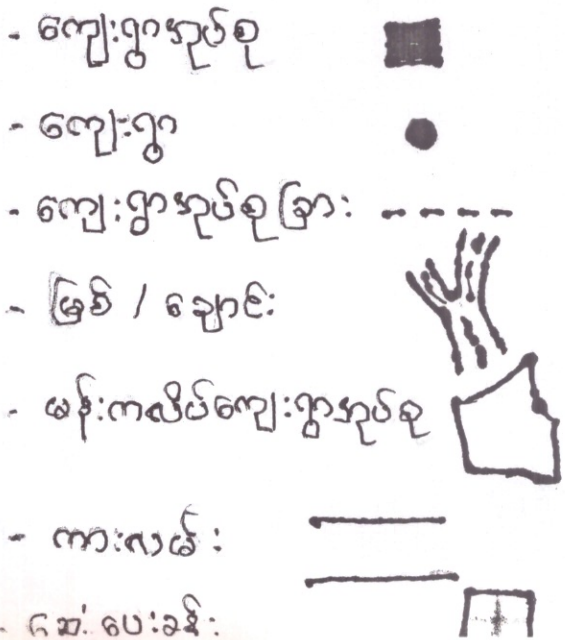 - ကျေးရွာအုပ်စု
- ကျေးရွာ
- ကျေးရွာအုပ်စုခြား
- မြစ် / ချောင်း
- မန်းကလိပ်ကျေးရွာအုပ်စု
- ကားလမ်း
- ဆေးပေးခန်း